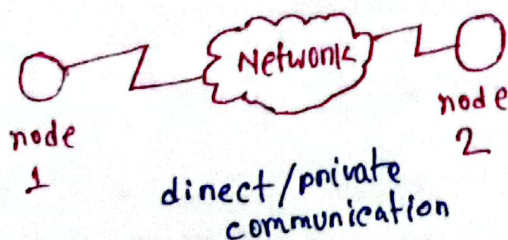 Network
node
1
node
2
direct/private
communication